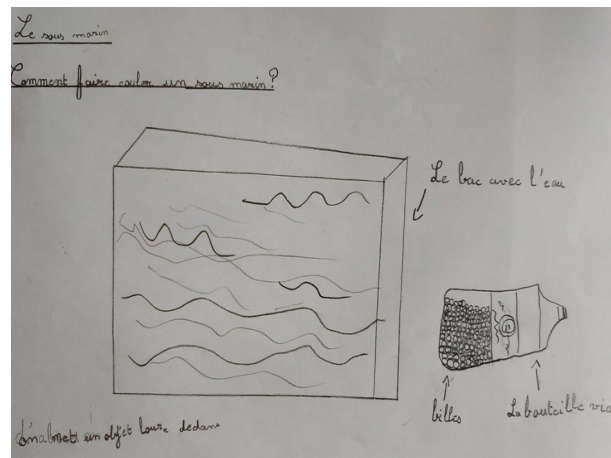 Le sous marin
Comment faire couler un sous marin?
Le bac avec l'eau
billes
La bouteille
un objet lourd dedans